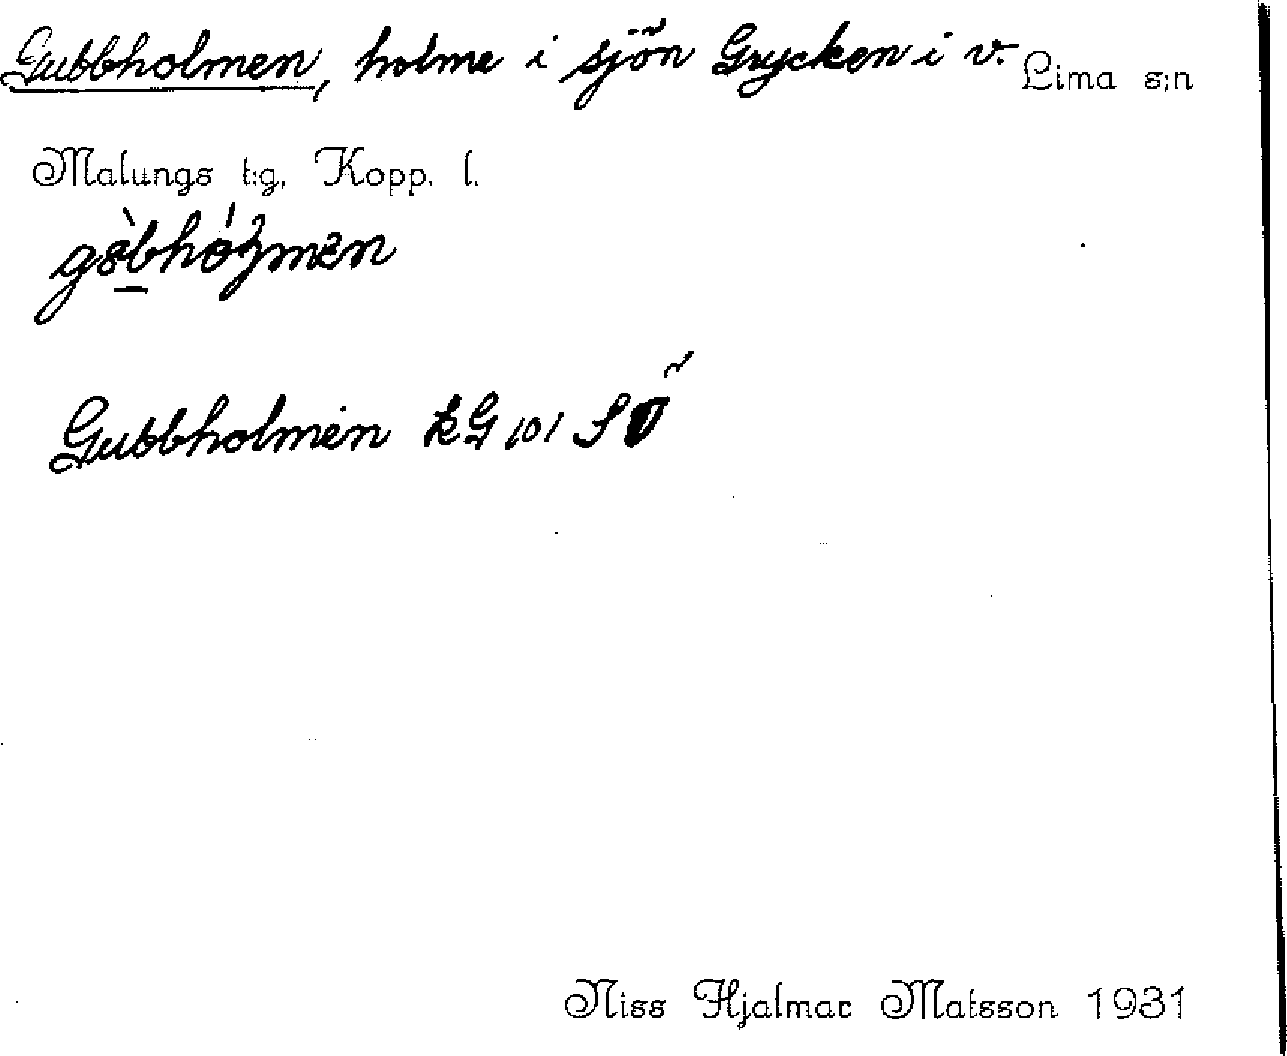 Gubbholmen, holme i sjön Grycken i v. Lima s:n
Malungs t:g, Kopp. l.
Gubbholmen kG 101 SV
Niss Hjalmar Matsson 1931